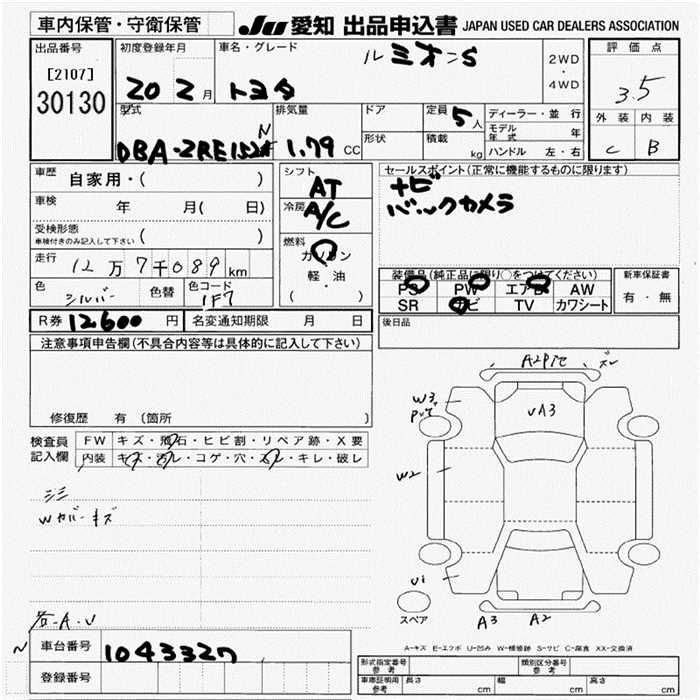 車内保管・守衛保管 JU 愛知 出品申込書 JAPAN USED CAR DEALERS ASSOCIATION
出品番号
[2107]
30130
初度登録年月
20 2月
車名・グレード ルミオンS
トヨタ
2WD
・
4WD
評価点
3.5
外装 内装
C B
型式
DBA-ZRE152N
排気量
1.79 CC
ドア
形状
定員 5人
積載 kg
ディーラー・並行
モデル年式 年
ハンドル 左・右
車歴 自家用・( )
車検 年 月( 日)
受検形態
車検付きのみ記入して下さい ( )
走行 12万7千089km
色 シルバー 色替 色コード 1F7
シフト AT
冷房 A/C
燃料
ガソリン
軽・油
( )
セールスポイント(正常に機能するものに限ります)
ナビ
バックカメラ
装備品(純正品に限り○をつけてください)
PS PW エアB AW
SR ナビ TV カワシート
新車保証書
有・無
R券 12,600円 名変通知期限 月 日
後日品
注意事項申告欄(不具合内容等は具体的に記入して下さい)
修復歴 有(箇所 )
検査員
記入欄
FW キズ・飛石・ヒビ割・リペア跡・X要
内装 キズ・汚レ・コゲ・穴・スレ・キレ・破レ
Wカバーキズ
各-A.U
A2
ズレ
W3
UA3
W2
U1
A3 A2
スペア
A-キズ E-エクボ U-凹み W-補修跡 S-サビ C-腐食 XX-交換済
N
車台番号 1043327
登録番号
型式指定番号
参考
類別区分番号
参考
車庫証明用
参考
長さ cm 幅 cm 高さ cm